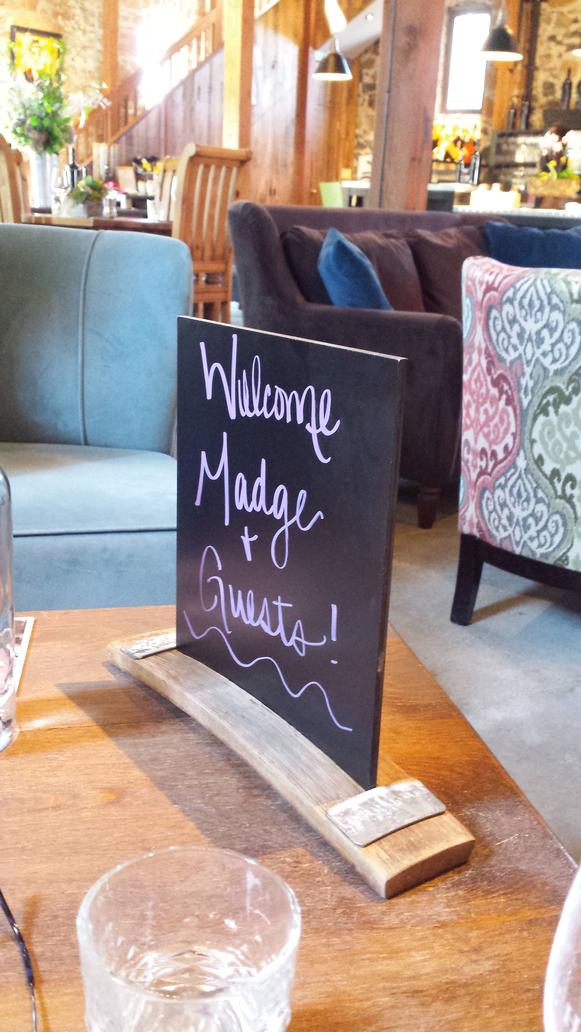 Welcome
Madge
+
Guests!